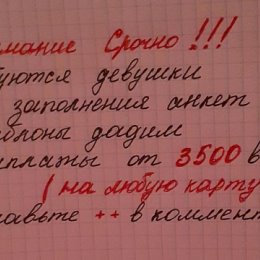 мание Срочно !!!
уются девушки
заполнения анкет
блоны дадим
платы от 3500 в
( на любую карту
авьте ++ в коммент